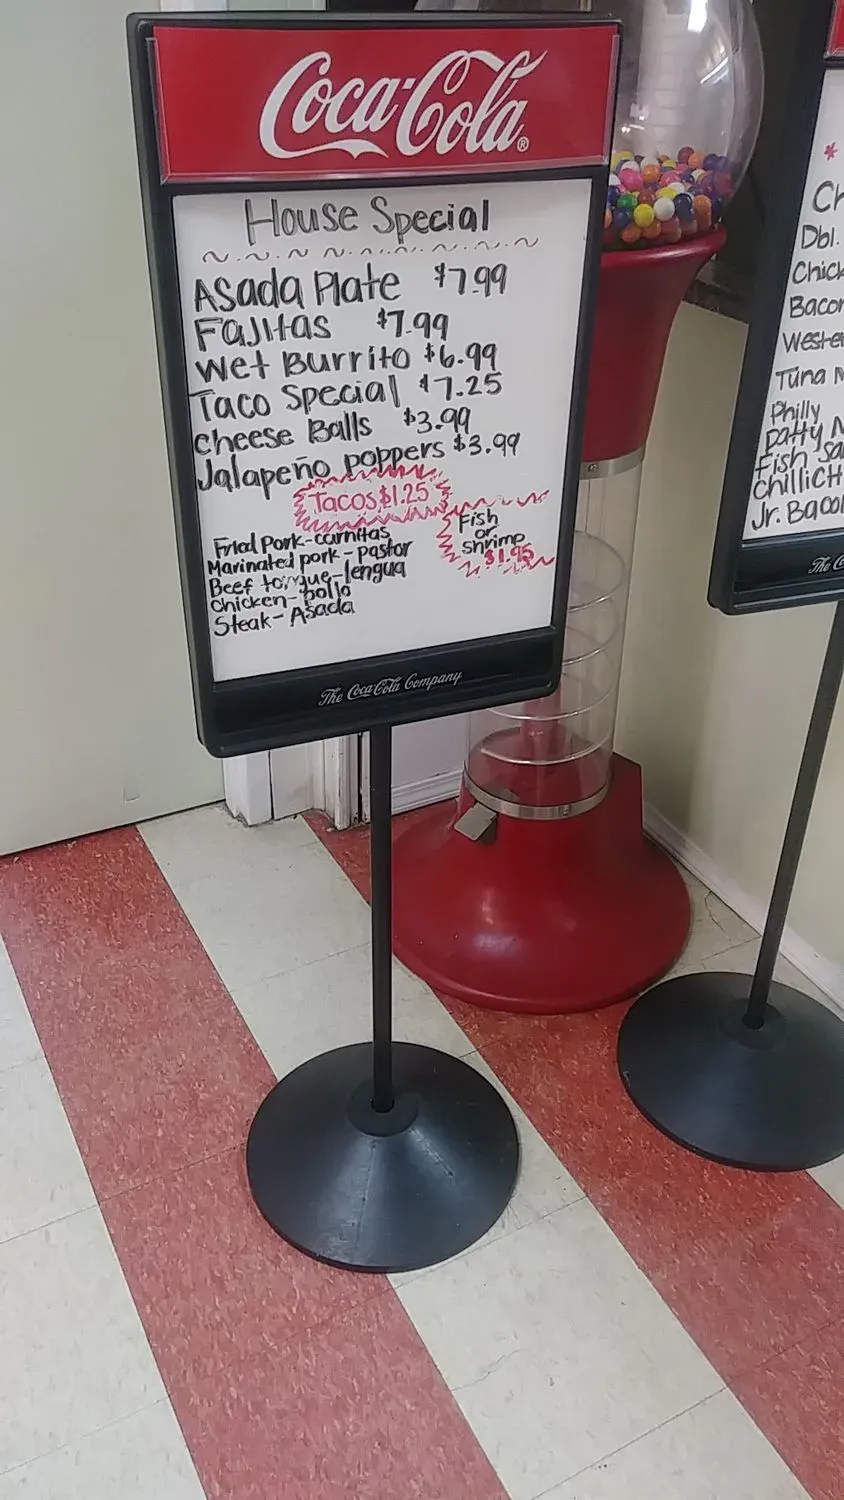 Coca-Cola®
House Special
Asada Plate $7.99
Fajitas $7.99
Wet Burrito $6.99
Taco Special $7.25
Cheese Balls $3.99
Jalapeño poppers $3.99
Tacos $1.25
Fried Pork-carnitas
Marinated pork-pastor
Beef tongue-lengua
Chicken-pollo
Steak-Asada
Fish
or
Shrimp
$1.95
The Coca-Cola Company
*
Dbl.
Tuna
Philly
patty
Fish
Jr. Baco
The